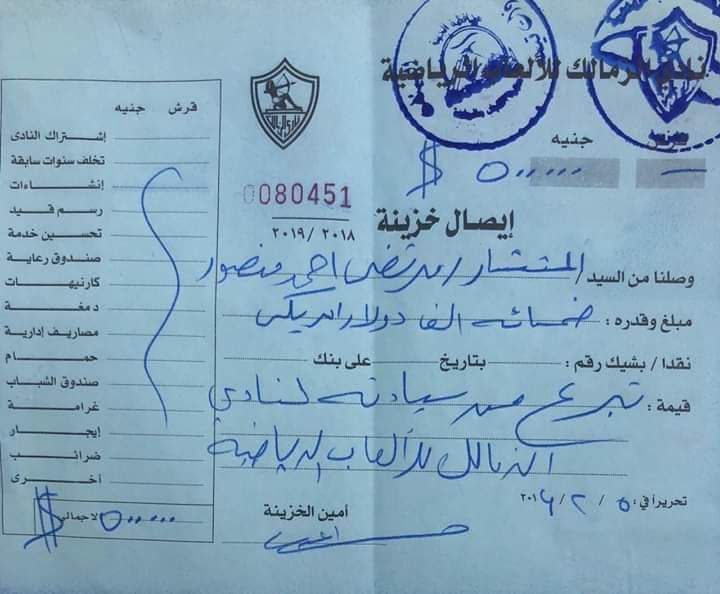 نادي الزمالك للألعاب الرياضية
قرش جنيه
$ ٥٠٠٠٠٠ —
0080451
إيصال خزينة
٢٠١٨ / ٢٠١٩
وصلنا من السيد / المستشار / مرتضى احمد منصور
مبلغ وقدره : خمسمائه الف دولار امريكى
نقدا / بشيك رقم : بتاريخ على بنك
قيمة : تبرع من سيادته لنادي
الزمالك للألعاب الرياضية
تحريرا في : ٥ / ٢ / ٢٠١٩
أمين الخزينة
قرش جنيه
إشتراك النادى
تخلف سنوات سابقة
إنشاءات
رسم قيد
تحسين خدمة
صندوق رعاية
كارنيهات
دمغة
مصاريف إدارية
حمام
صندوق الشباب
غرامة
إيجار
ضرائب
أخرى
الاجمالى ٥٠٠٠٠٠ $